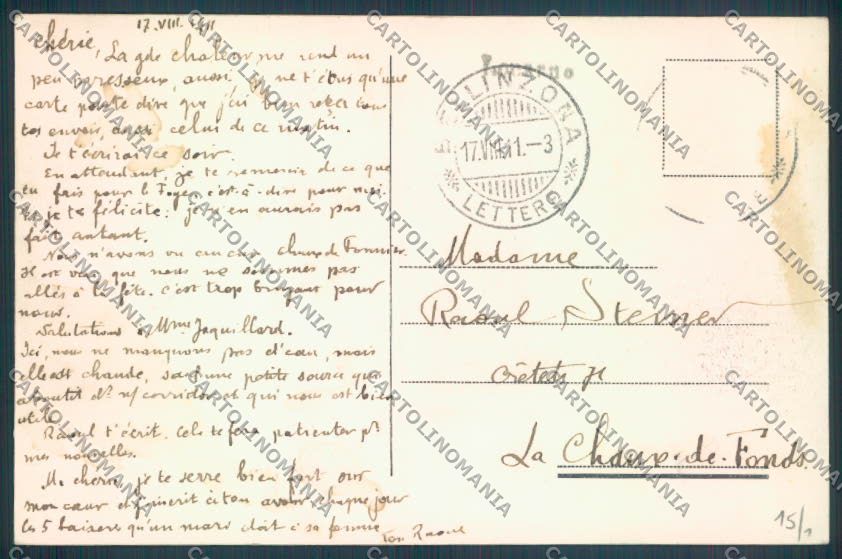 17.VIII.11
Chérie,
La gde chaleur me rend un
peu paresseux, aussi je ne t'écris qu'une
carte postale dire que j'ai bien reçu tous
tes envois, aussi celui de ce matin.
Je t'écrirai ce soir.
En attendant, je te remercie de ce que
tu fais pour le Foyer c'est-à-dire pour moi
je te félicite: je n'en aurais pas
fait autant.
Nous n'avons vu aucun chaux-de-fonnier.
Il est vrai que nous ne sommes pas
allés à la fête. C'est trop bruyant pour
nous.
Salutations à Mme Jaquillard.
Ici, nous ne manquons pas d'eau, mais
elle est chaude, sauf une petite source qui
aboutit ds n/ corridor et qui nous est bien
utile.
Raoul t'écrit. Cela te fera patienter pr
mes nouvelles.
Ma chérie, je te serre bien fort sur
mon cœur et chaque jour
les 5 baisers qu'un mari doit à sa femme
Ton Raoul
Locarno
BELLINZONA
17.VIII.11.-3
LETTERE
Madame
Raoul Steiner
Crêtets 71
La Chaux-de-Fonds.
15/1
CARTOLINOMANIA